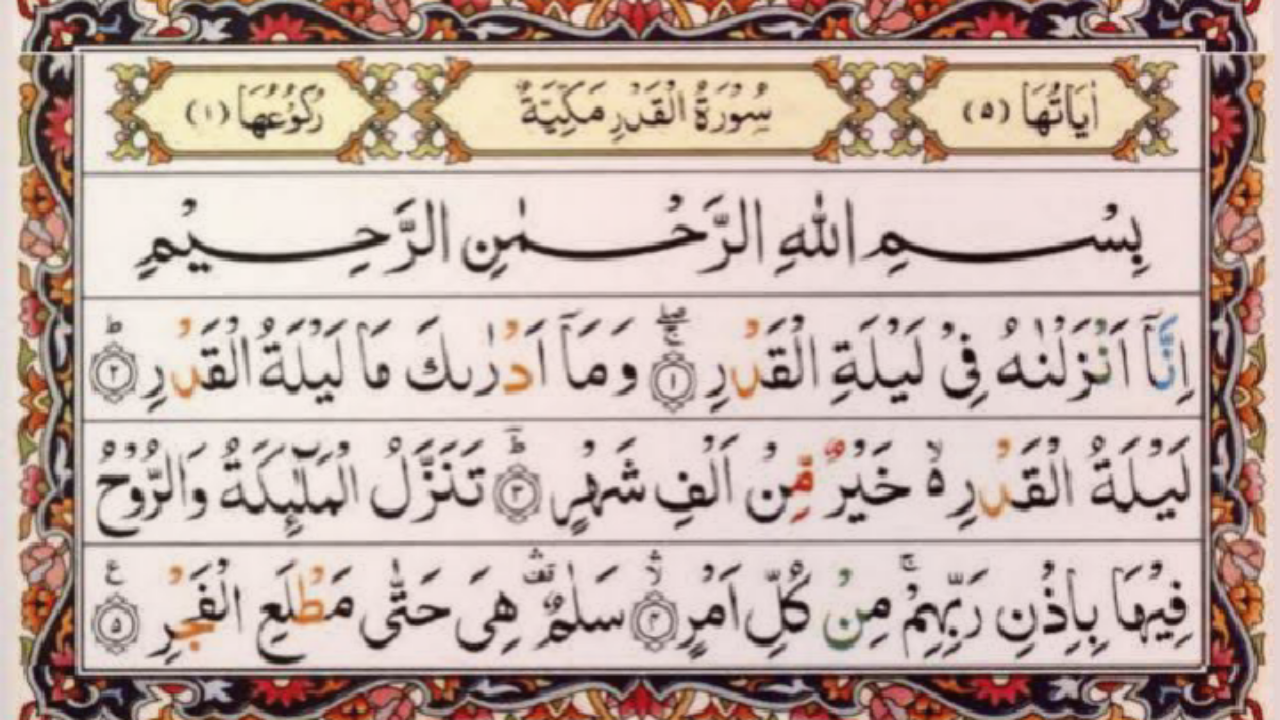 اٰيَاتُهَا (٥) سُوْرَةُ الْقَدْرِ مَكِّيَّةٌ رُكُوْعُهَا (١)
بِسْمِ اللّٰهِ الرَّحْمٰنِ الرَّحِيْمِ
اِنَّاۤ اَنْزَلْنٰهُ فِیْ لَیْلَةِ الْقَدْرِ ۚۖ ﴿١﴾ وَ مَاۤ اَدْرٰىكَ مَا لَیْلَةُ الْقَدْرِ ؕ ﴿٢﴾
لَیْلَةُ الْقَدْرِ ۙ۬ خَیْرٌ مِّنْ اَلْفِ شَهْرٍ ؕ ﴿٣﴾ تَنَزَّلُ الْمَلٰٓىِٕكَةُ وَالرُّوْحُ
فِیْهَا بِاِذْنِ رَبِّهِمْ ۚ مِنْ كُلِّ اَمْرٍ ۙ ﴿٤﴾ سَلٰمٌ ۛ۫ هِیَ حَتّٰی مَطْلَعِ الْفَجْرِ ﴿٥﴾ ع